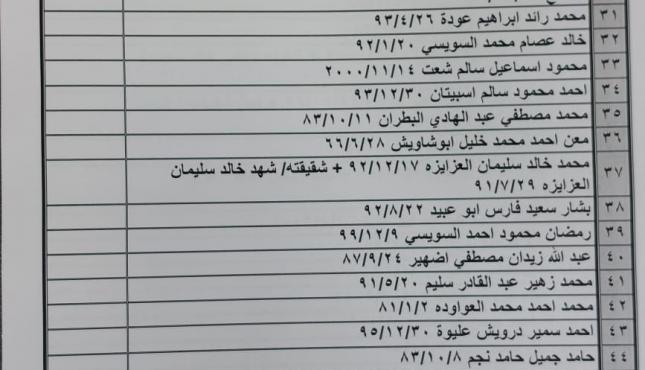 ٣١ محمد رائد ابراهيم عودة ٩٣/٤/٢٦
٣٢ خالد عصام محمد السويسي ٩٢/١/٢٠
٣٣ محمود اسماعيل سالم شعت ٢٠٠٠/١١/١٤
٣٤ احمد محمود سالم اسبيتان ٩٣/١٢/٣٠
٣٥ محمد مصطفي عبد الهادي البطران ٨٣/١٠/١١
٣٦ معن احمد محمد خليل ابوشاويش ٦٦/٦/٢٨
٣٧ محمد خالد سليمان العزايزه ٩٢/١٢/١٧ + شقيقته/ شهد خالد سليمان
العزايزه ٩١/٧/٢٩
٣٨ بشار سعيد فارس ابو عبيد ٩٢/٨/٢٢
٣٩ رمضان محمود احمد السويسي ٩٩/١٢/٩
٤٠ عبد الله زيدان مصطفي اضهير ٨٧/٩/٢٤
٤١ محمد زهير عبد القادر سليم ٩١/٥/٢٠
٤٢ محمد احمد محمد العواوده ٨١/١/٢
٤٣ احمد سمير درويش عليوة ٩٥/١٢/٣٠
٤٤ حامد جميل حامد نجم ٨٣/١٠/٨